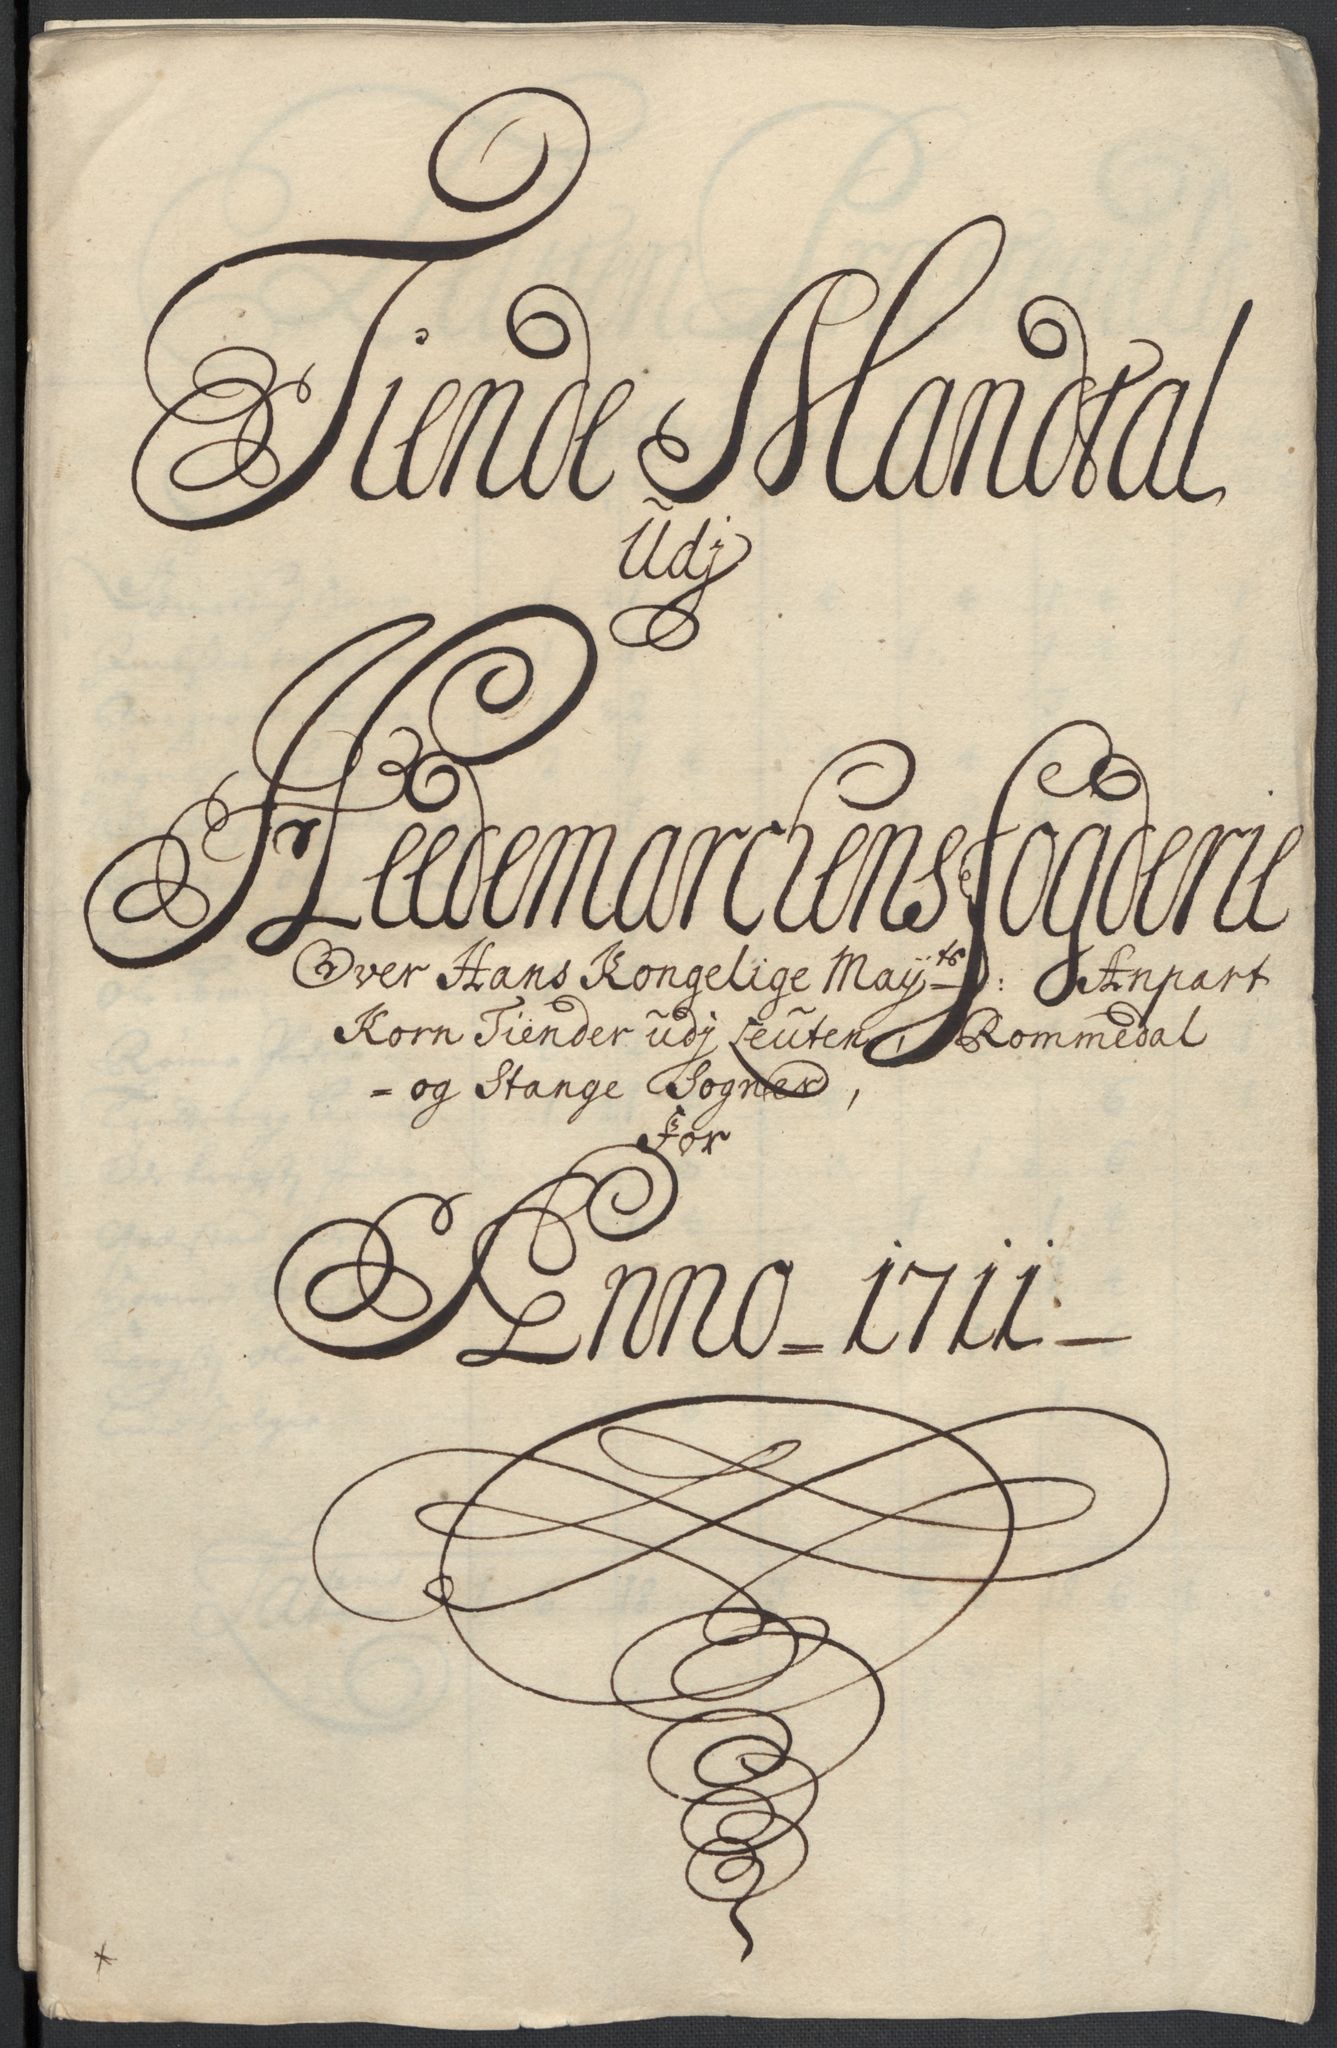 Tiende Mandtal
Udj
Heedemarchens fogderie
Over Hans Kongelige Mayts: Anpart
Korn Tiender udj Leuten, Rommedal
= og Stange Sogner,
For
Anno = 1711 —